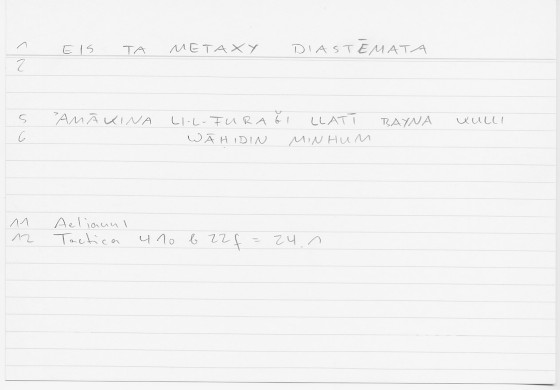 1 EIS TA METAXY DIASTĒMATA
2
5 ʾAMĀKINA LI-L-FURAǦI LLATĪ BAYNA KULLI
6 WĀḤIDIN MINHUM
11 Aelianus
12 Tactica 410 b 22f = 24.1